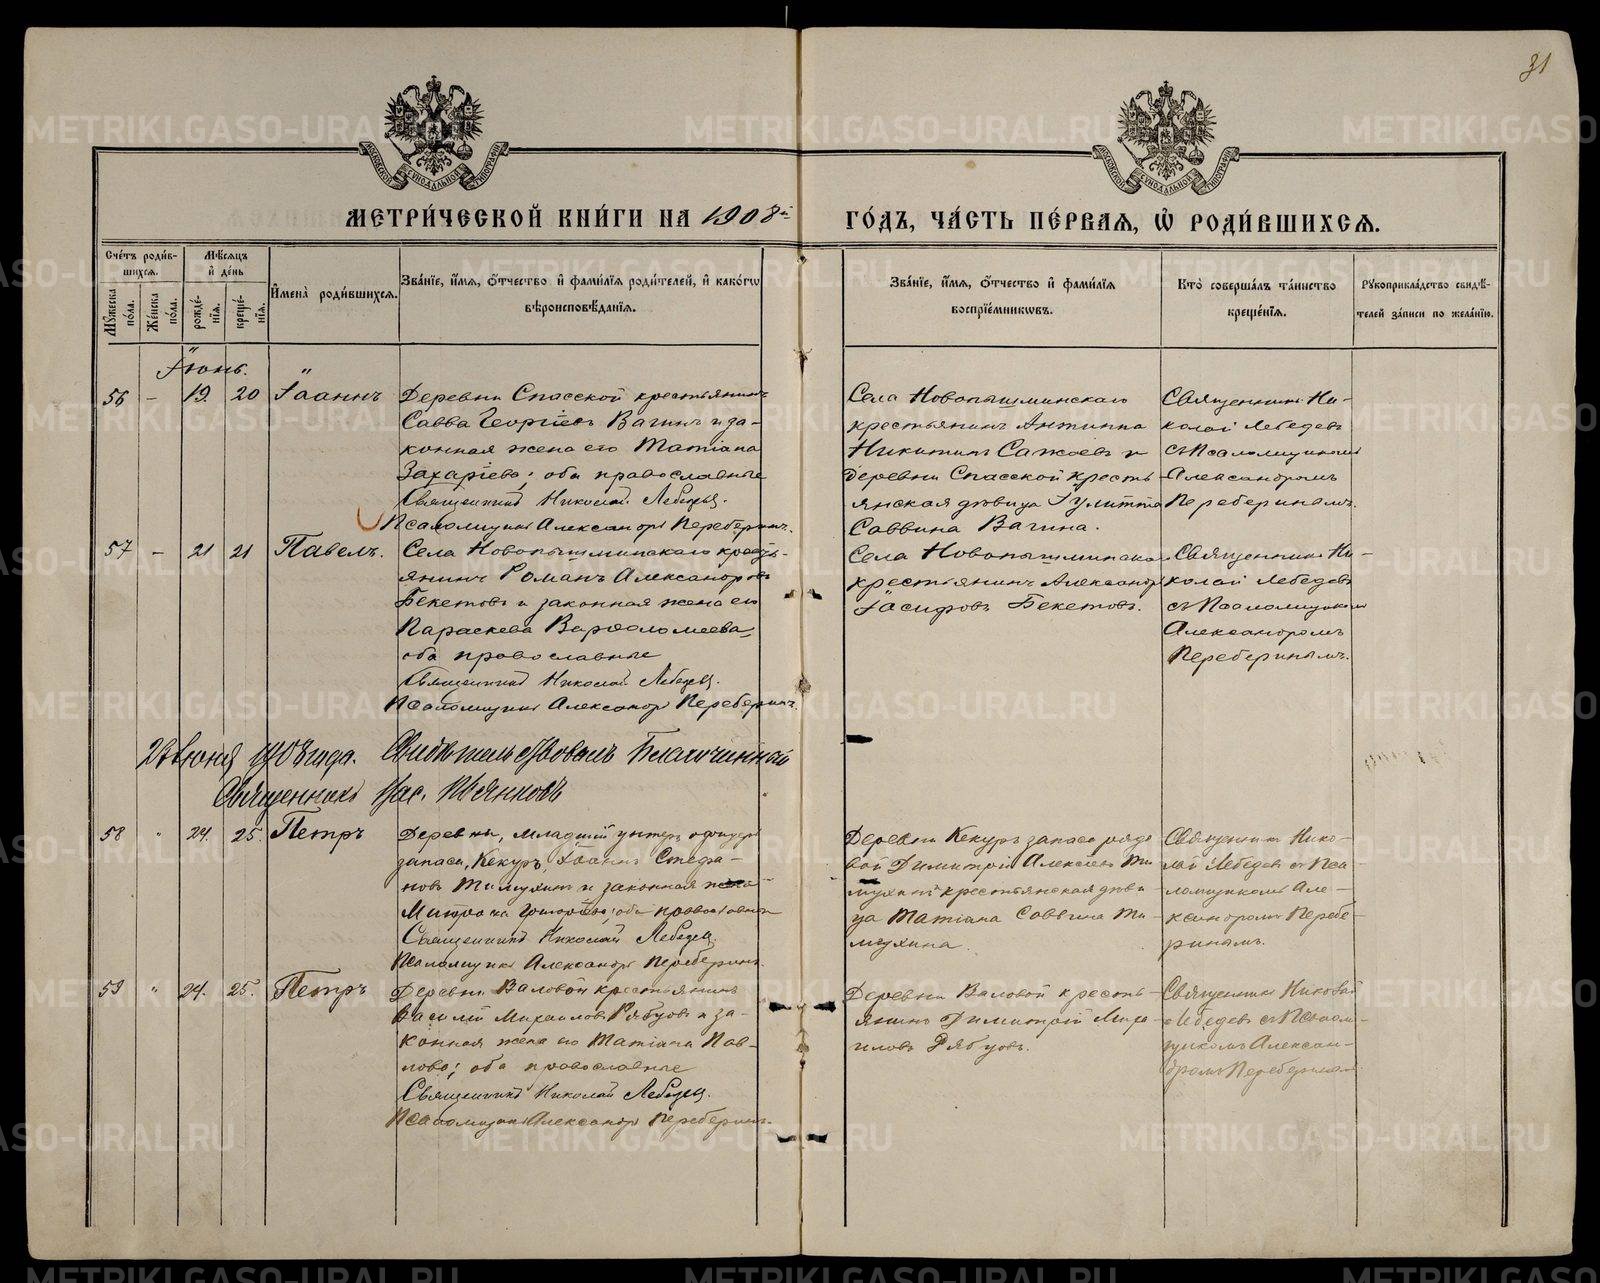 31
МЕТРИ́ЧЕСКОЙ КНИ́ГИ НА 1908й
ГО́ДЪ, ЧА́СТЬ ПЕ́РВАЯ, Ѡ РОДИ́ВШИХСѦ.
Сче́тъ роди́в-
шихсѧ.
Мѣсѧцъ
и҆ де́нь
Мꙋжеска по́ла.
Же́нска по́ла.
рожде́-
нїѧ.
креще́-
нїѧ.
И҆мена̀ роди́вшихсѧ.
Зва́нїе, и҆́мѧ, ѻ҆́тчество и҆ фами́лїѧ роди́телей, и҆ како́гѡ
вѣроисповѣ́данїѧ.
Зва́нїе, и҆́мѧ, ѻ҆́тчество и҆ фами́лїѧ
воспрїе́мникѡвъ.
Кто̀ соверша́лъ та́инство
креще́нїѧ.
Рꙋкоприкла́дство свидѣ́-
телей за́писи по жела́нїю.
Іюнь.
56 - 19. 20 Іоаннъ
Деревни Спасской крестьянинъ
Савва Георгіевъ Вагинъ и за-
конная жена его Татіана
Захаріева; оба православные
Священникъ Николай Лебедевъ.
Псаломщикъ Александръ Переберинъ.
Села Новопышминскаго
крестьянинъ Антипа
Никитинъ Сажаевъ и
деревни Спасской кресть-
янская дѣвица Іулитта
Саввина Вагина.
Священникъ Ни-
колай Лебедевъ
съ Псаломщикомъ
Александромъ
Переберинымъ.
57 - 21 21 Павелъ.
Села Новопышминскаго кресть-
янинъ Романъ Александровъ
Бекетовъ и законная жена его
Параскева Варѳоломеева,
оба православные
Священникъ Николай Лебедевъ.
Псаломщикъ Александръ Переберинъ.
Села Новопышминскаго
крестьянинъ Александръ
Іасифовъ Бекетовъ.
Священникъ Ни-
колай Лебедевъ
съ Псаломщикомъ
Александромъ
Переберинымъ.
Іюня 1908 года. Свидѣтельствовалъ Благочинный
Священникъ
58 " 24. 25. Петръ
Деревни, младшій унтеръ офицеръ
запаса, Кекуръ, Іоаннъ Стефа-
новъ Тимухинъ и законная жена
Митрона Григорьева; оба православные
Священникъ Николай Лебедевъ.
Псаломщикъ Александръ Переберинъ.
Деревни Кекуръ запаса рядо-
вой Димитрій Алексѣевъ Ти-
мухинъ и крестьянская дѣви-
ца Татіана Саввина Ти-
мухина.
Священникъ Нико-
лай Лебедевъ съ Пса-
ломщикомъ Але-
ксандромъ Перебе-
ринымъ.
59 " 24. 25. Петръ
Деревни Валовой крестьянинъ
Василій Михаиловъ Рябуовъ и за-
конная жена его Татіана Пав-
лова; оба православные
Священникъ Николай Лебедевъ.
Псаломщикъ Александръ Переберинъ.
Деревни Валовой кресть-
янинъ Димитрій Миха-
иловъ Рябуовъ.
Священникъ Николай
Лебедевъ съ Псалом-
щикомъ Алексан-
дромъ Переберинымъ